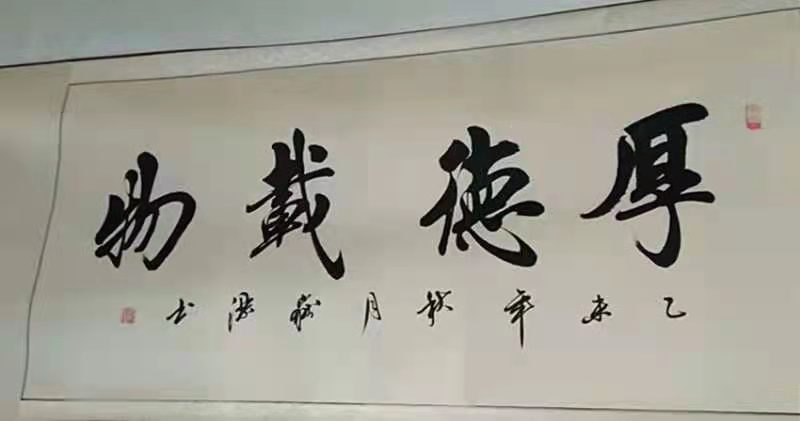 厚德載物
乙未年秋月 書